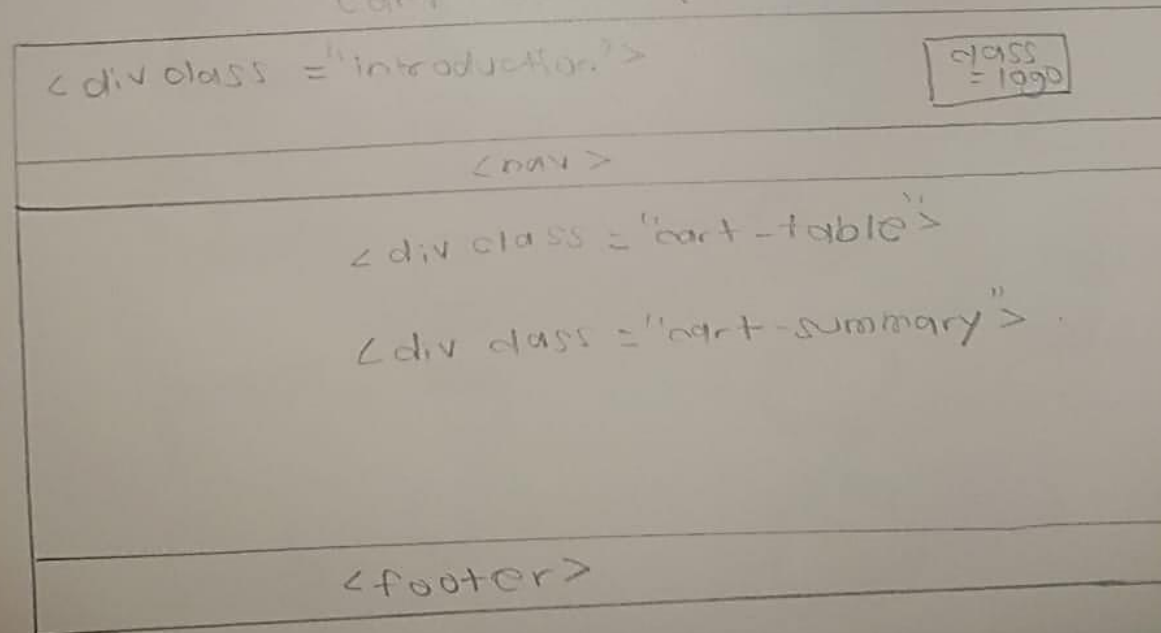 <div class = "introduction">
class
= logo
<nav>
<div class = "cart-table">
<div class = "cart-summary">
<footer>